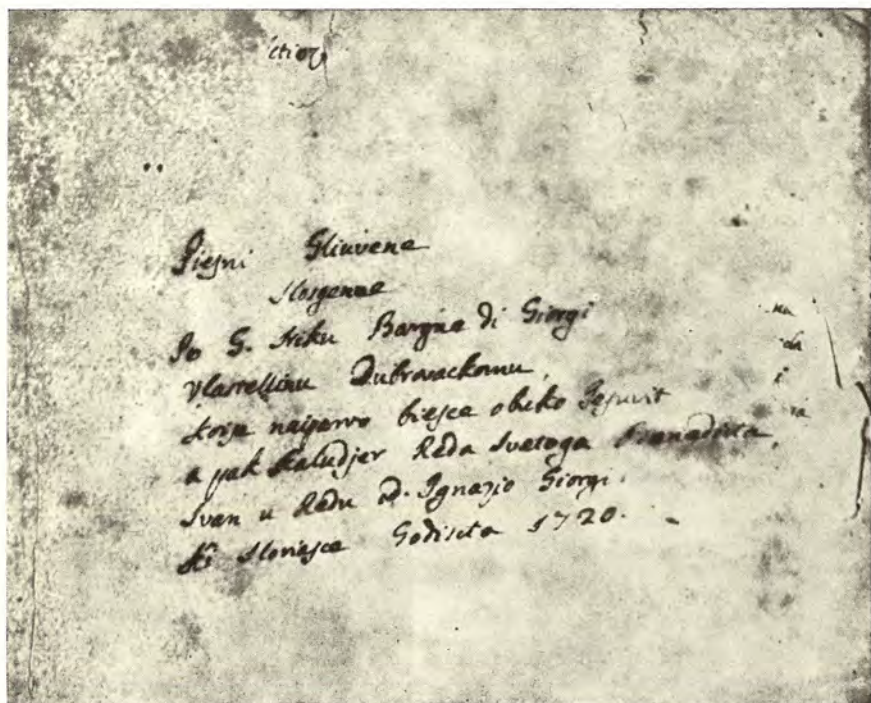 Piesni Gliuvene
Slosgenne
Po G. Niku Bargna di Giorgi
Vlastellinu Dubrovackomu,
koije naiparvo biesce obuko Jesuvit
a pak Kaludjer Reda Svetoga
Svan u Redu D. Ignazio Giorgi.
Godiscta 1720.